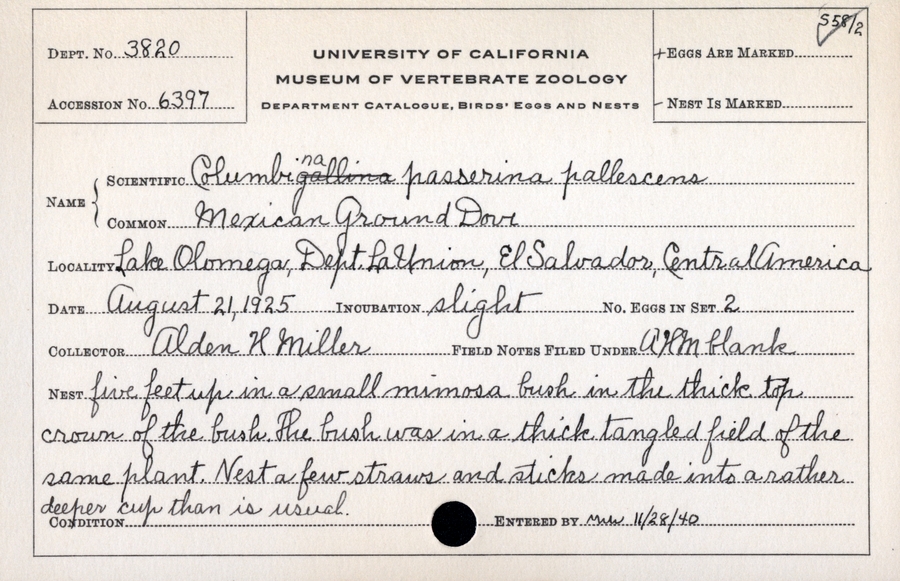 S58/2
Dept. No. 3820
UNIVERSITY OF CALIFORNIA
+Eggs Are Marked
MUSEUM OF VERTEBRATE ZOOLOGY
Accession No. 6397
Department Catalogue, Birds' Eggs and Nests
- Nest Is Marked
na
Name { Scientific Columbigallina passerina pallescens
Common Mexican Ground Dove
Locality Lake Olomega, Dept. La Union, El Salvador, Central America
Date August 21, 1925 Incubation slight No. Eggs in Set 2
Collector Alden H Miller Field Notes Filed Under AHM blank
Nest five feet up in a small mimosa bush in the thick top
crown of the bush. The bush was in a thick tangled field of the
same plant. Nest a few straws and sticks made into a rather
deeper cup than is usual.
Condition Entered by 11/28/40